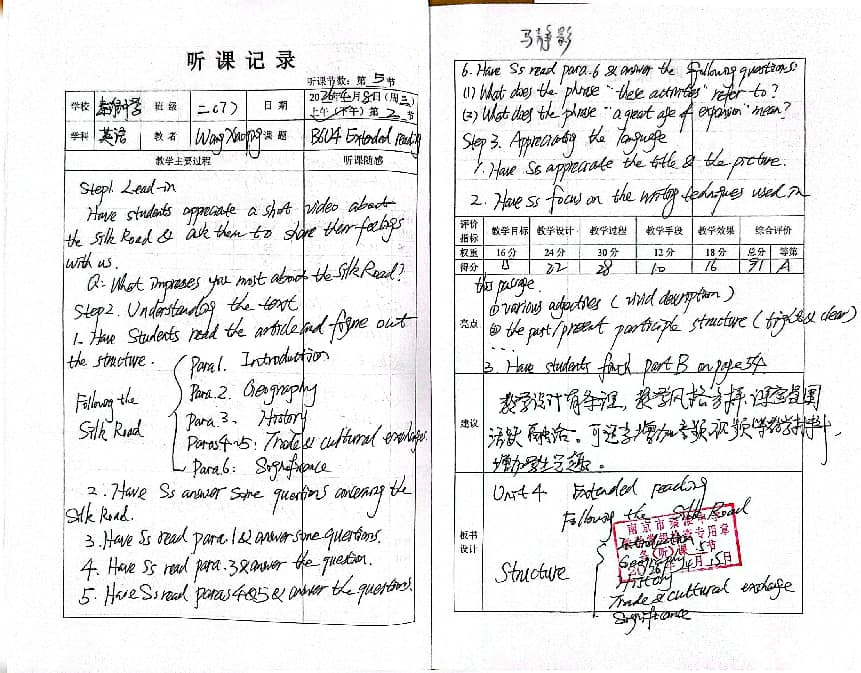 听课记录
听课节数：第 5 节
学校 班级 二(7) 日期 2026年4月8日(周三)
上午(下午) 第2节
学科 英语 教者 Wang 课题 B6U4 Extended reading
教学主要过程 听课随感
Step1. Lead-in
Have students appreciate a short video about
the Silk Road & ask them to share their feelings
with us.
Q: What impresses you most about the Silk Road?
Step2. Understanding the text
1. Have Students read the article and figure out
the structure.
Following the
Silk Road
Para1. Introduction
Para.2. Geography
Para.3. History
Paras4-5: Trade & cultural exchange
Para6: Significance
2. Have Ss answer some questions concerning the
Silk Road.
3. Have Ss read para.1 & answer some questions.
4. Have Ss read para.3 & answer the question.
5. Have Ss read paras 4&5 & answer the questions.
马静影
6. Have Ss read para.6 & answer the following questions:
(1) What does the phrase "these activities" refer to?
(2) What does the phrase "a great age of expansion" mean?
Step 3. Appreciating the language
1. Have Ss appreciate the title & the picture.
2. Have Ss focus on the writing techniques used in
评价指标 教学目标 教学设计 教学过程 教学手段 教学效果 综合评价
权重 16分 24分 30分 12分 18分 总分 等第
得分 15 22 28 10 16 91 A
this passage.
亮点
① various adjectives (vivid description)
② the past/present participle structure (tight & clear)
...
3. Have students finish part B on page 54
建议
教学设计有条理，教学风格大方，课堂氛围
活跃融洽。可适当增加音频视频等教学
增加学生兴趣。
板书设计
Unit 4 Extended reading
Following the Silk Road
Structure
Introduction
Geography
History
Trade & cultural exchange
Significance
南京市
专用章
(听)课 5 节
2026年4月15日